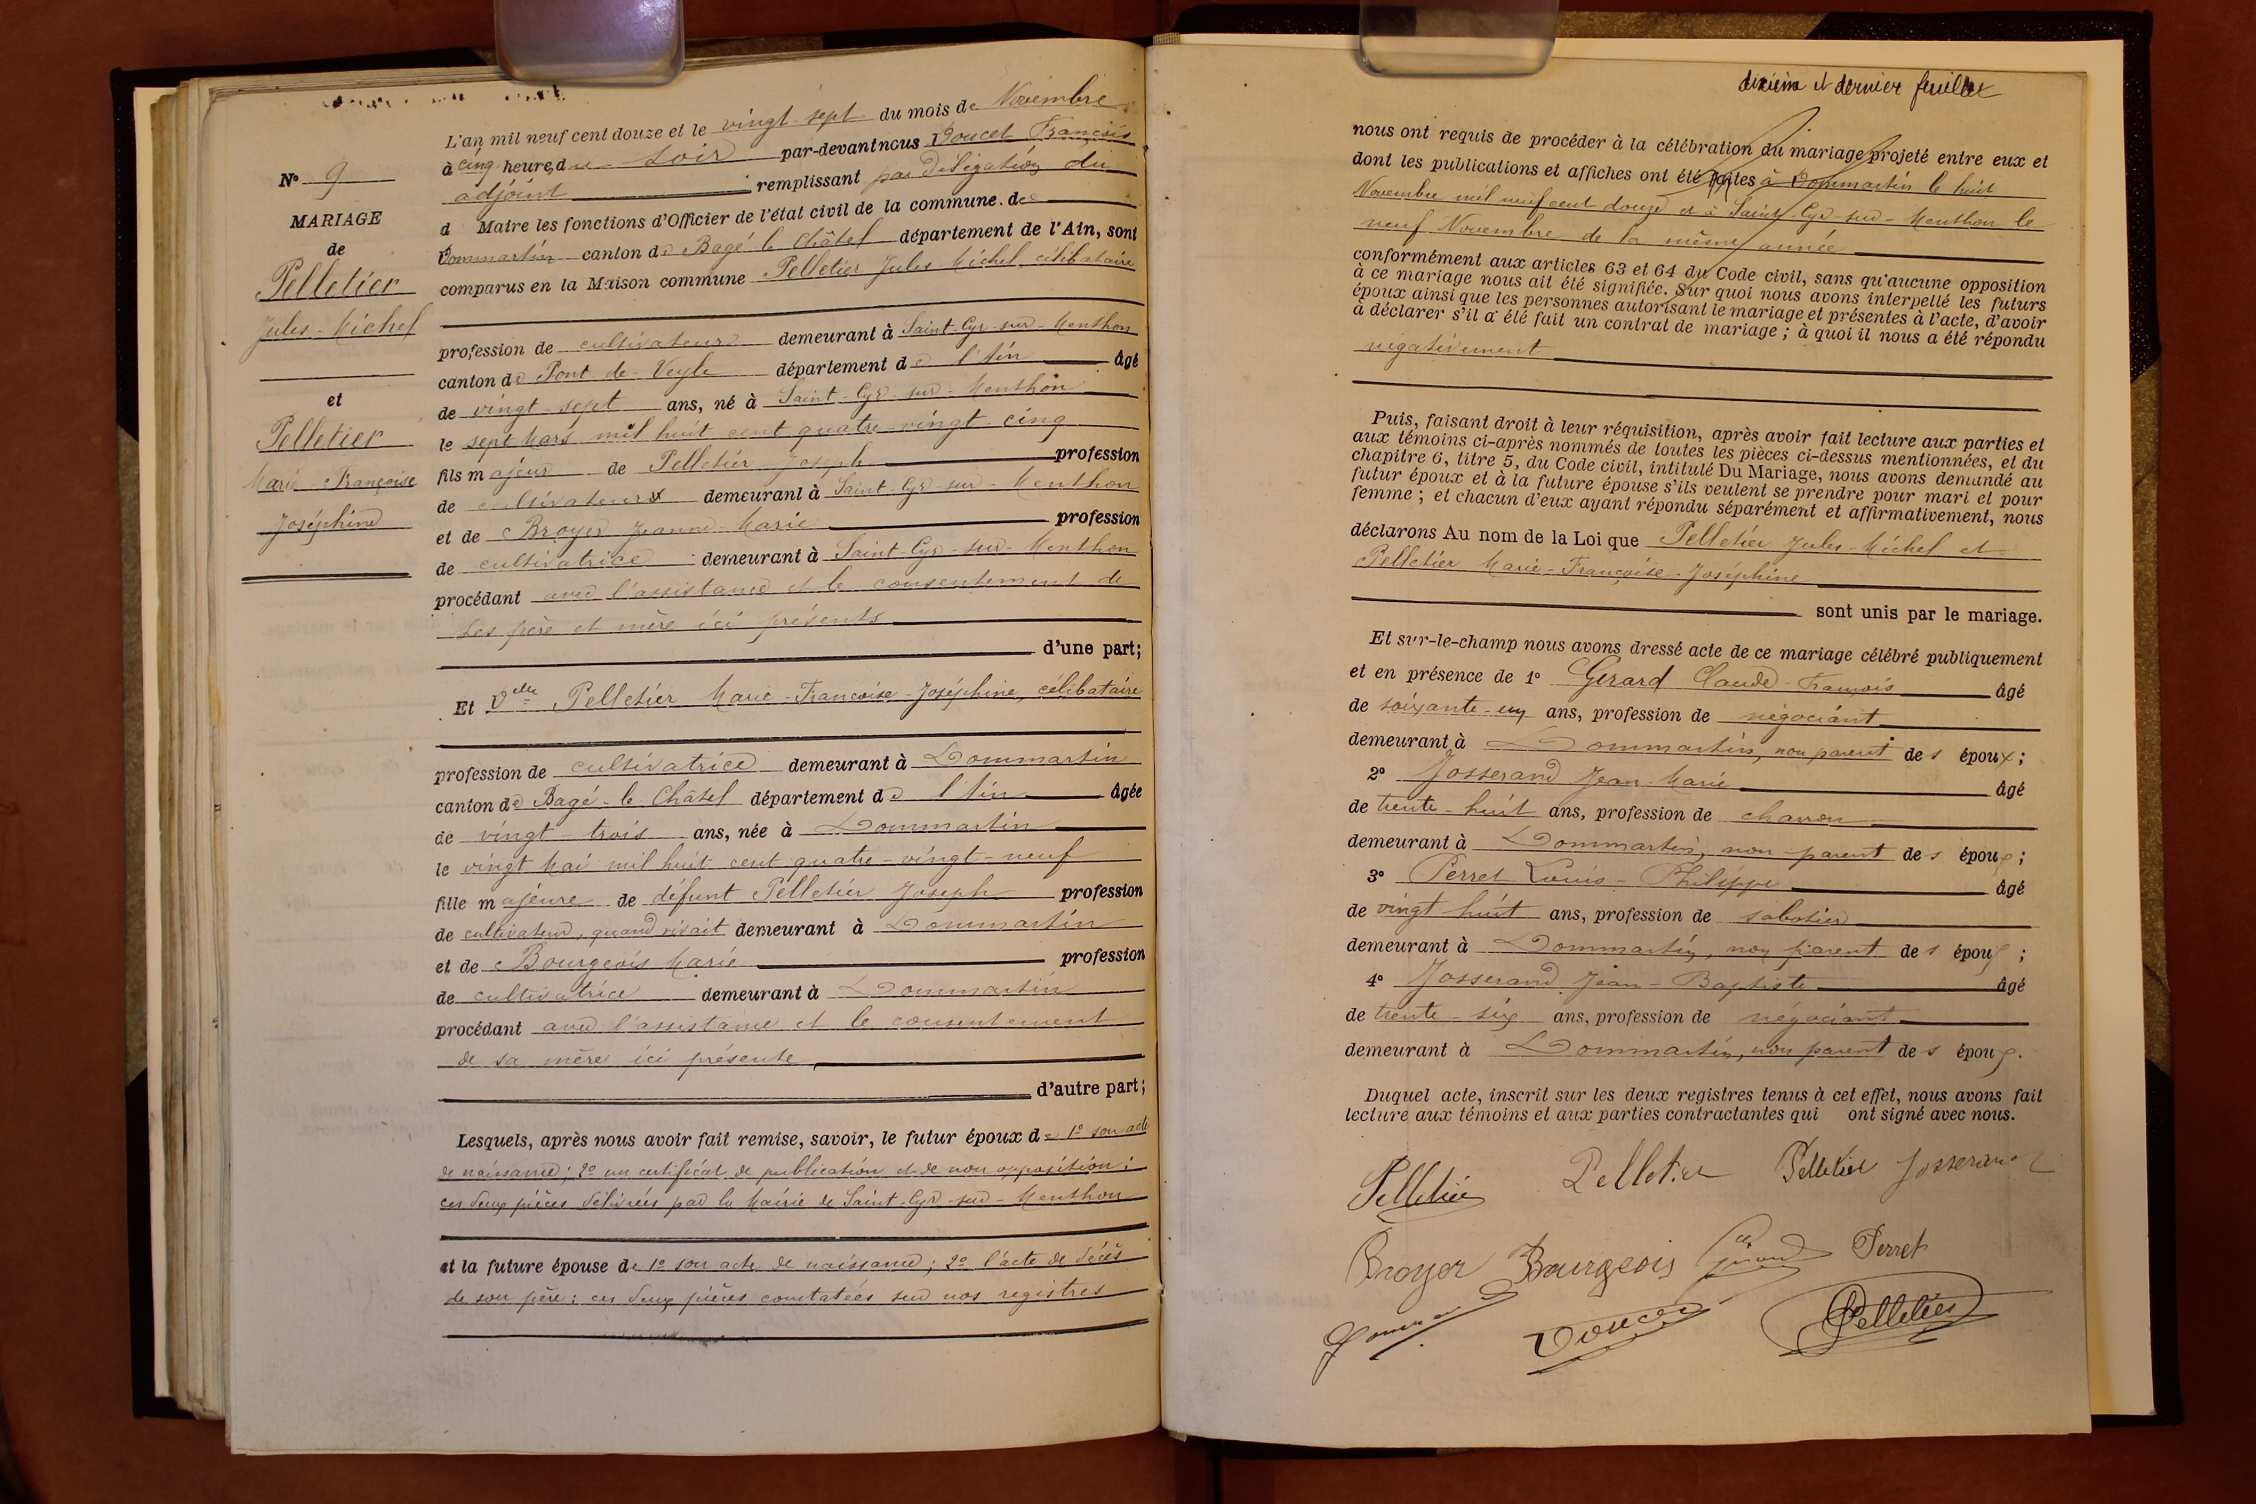 N° 9
MARIAGE
de
Pelletier
Jules-Michel
et
Pelletier
Marie-Françoise
Joséphine
L'an mil neuf cent douze et le vingt-sept du mois de Novembre
à cinq heure du soir par-devant nous Doucet François
adjoint remplissant par délégation du
d Maire les fonctions d'Officier de l'état civil de la commune de
Dommartin canton de Bagé-le-Châtel département de l'Ain, sont
comparus en la Maison commune Pelletier Jules-Michel, célibataire
profession de cultivateur demeurant à Saint-Cyr-sur-Menthon
canton de Pont-de-Veyle département de l'Ain âgé
de vingt-sept ans, né à Saint-Cyr-sur-Menthon
le sept Mars mil huit cent quatre-vingt-cinq
fils majeur de Pelletier Joseph profession
de cultivateur demeurant à Saint-Cyr-sur-Menthon
et de Broyer Jeanne-Marie profession
de cultivatrice demeurant à Saint-Cyr-sur-Menthon
procédant avec l'assistance et le consentement de
ses père et mère ici présents
d'une part;
Et Delle Pelletier Marie-Françoise-Joséphine, célibataire
profession de cultivatrice demeurant à Dommartin
canton de Bagé-le-Châtel département de l'Ain âgée
de vingt-trois ans, née à Dommartin
le vingt Mai mil huit cent quatre-vingt-neuf
fille majeure de défunt Pelletier Joseph profession
de cultivateur, quand vivait demeurant à Dommartin
et de Bourgeois Marie profession
de cultivatrice demeurant à Dommartin
procédant avec l'assistance et le consentement
de sa mère ici présente
d'autre part;
Lesquels, après nous avoir fait remise, savoir, le futur époux de 1° son acte
de naissance; 2° un certificat de publication et de non opposition;
ces deux pièces délivrées par la Mairie de Saint-Cyr-sur-Menthon
et la future épouse de 1° son acte de naissance; 2° l'acte de décès
de son père: ces deux pièces constatées sur nos registres
dixième et dernier feuillet
nous ont requis de procéder à la célébration du mariage projeté entre eux et
dont les publications et affiches ont été faites à Dommartin le huit
Novembre mil neuf cent douze et à Saint-Cyr-sur-Menthon le
neuf Novembre de la même année
conformément aux articles 63 et 64 du Code civil, sans qu'aucune opposition
à ce mariage nous ait été signifiée. Sur quoi nous avons interpellé les futurs
époux ainsi que les personnes autorisant le mariage et présentes à l'acte, d'avoir
à déclarer s'il a été fait un contrat de mariage; à quoi il nous a été répondu
négativement
Puis, faisant droit à leur réquisition, après avoir fait lecture aux parties et
aux témoins ci-après nommés de toutes les pièces ci-dessus mentionnées, et du
chapitre 6, titre 5, du Code civil, intitulé Du Mariage, nous avons demandé au
futur époux et à la future épouse s'ils veulent se prendre pour mari et pour
femme; et chacun d'eux ayant répondu séparément et affirmativement, nous
déclarons Au nom de la Loi que Pelletier Jules-Michel et
Pelletier Marie-Françoise-Joséphine
sont unis par le mariage.
Et sur-le-champ nous avons dressé acte de ce mariage célébré publiquement
et en présence de 1° Gérard Claude-François âgé
de soixante-un ans, profession de négociant
demeurant à Dommartin, non parent des époux;
2° Josserand Jean-Marie âgé
de trente-huit ans, profession de charron
demeurant à Dommartin, non parent des époux;
3° Perret Louis-Philippe âgé
de vingt huit ans, profession de sabotier
demeurant à Dommartin, non parent des époux;
4° Josserand Jean-Baptiste âgé
de trente-six ans, profession de négociant
demeurant à Dommartin, non parent des époux.
Duquel acte, inscrit sur les deux registres tenus à cet effet, nous avons fait
lecture aux témoins et aux parties contractantes qui ont signé avec nous.
Pelletier Pelletier Pelletier Josserand
Broyer Bourgeois Perret
Doucet Pelletier